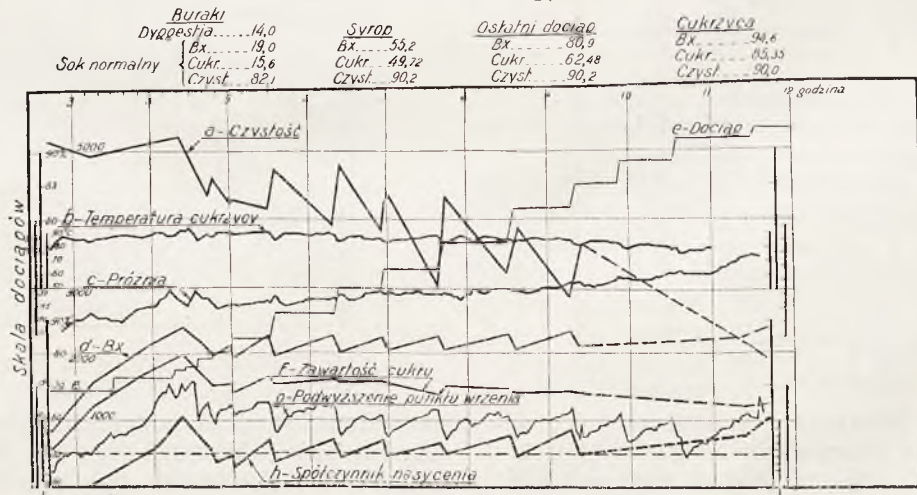 Buraki
Dyggestja 14,0
Sok normalny
Bx 19,0
Cukr. 15,6
Czyst. 82,1
Syrop
Bx 55,2
Cukr. 49,72
Czyst. 90,2
Ostatni dociąg
Bx 80,9
Cukr 62,48
Czyst. 90,2
Cukrzyca
Bx 94,6
Cukr. 85,35
Czyst. 90,0
3 5 9 10 11 12 godzina
a-Czystość
e-Dociąg
90% 5000
b-Temperatura cukrzycy
c-Próżnia
3000
Skala dociągów
d-Bx
2000
f-Zawartość cukru
g-Podwyższenie punktu wrzenia
1000
h-Spółczynnik nasycenia